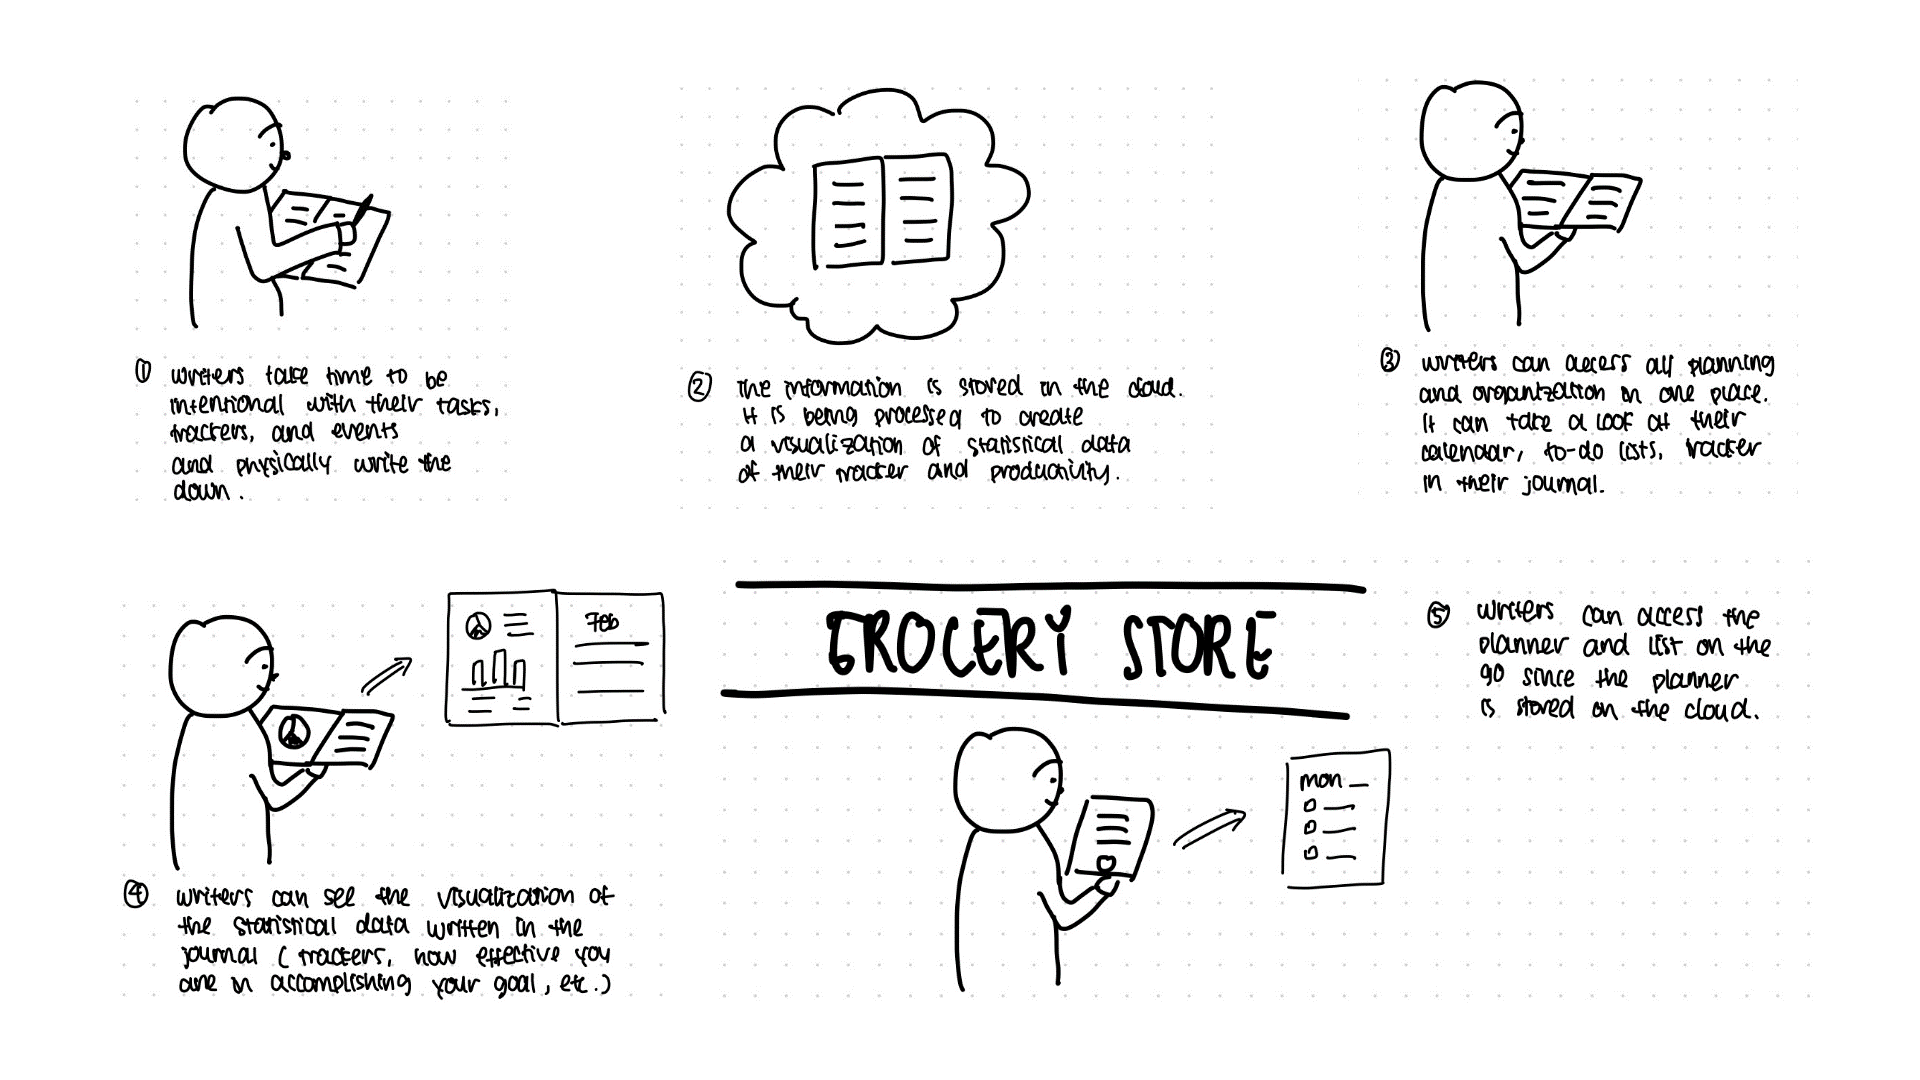 ① writers take time to be
intentional with their tasks,
trackers, and events
and physically write the
down.
② The information is stored in the cloud.
It is being processed to create
a visualization of statistical data
of their tracker and productivity.
③ writers can access all planning
and organization in one place.
It can take a look at their
calendar, to-do lists, tracker
in their journal.
Feb
④ writers can see the visualization of
the statistical data written in the
journal (trackers, how effective you
are in accomplishing your goal, etc.)
GROCERY STORE
mon
⑤ writers can access the
planner and list on the
go since the planner
is stored on the cloud.